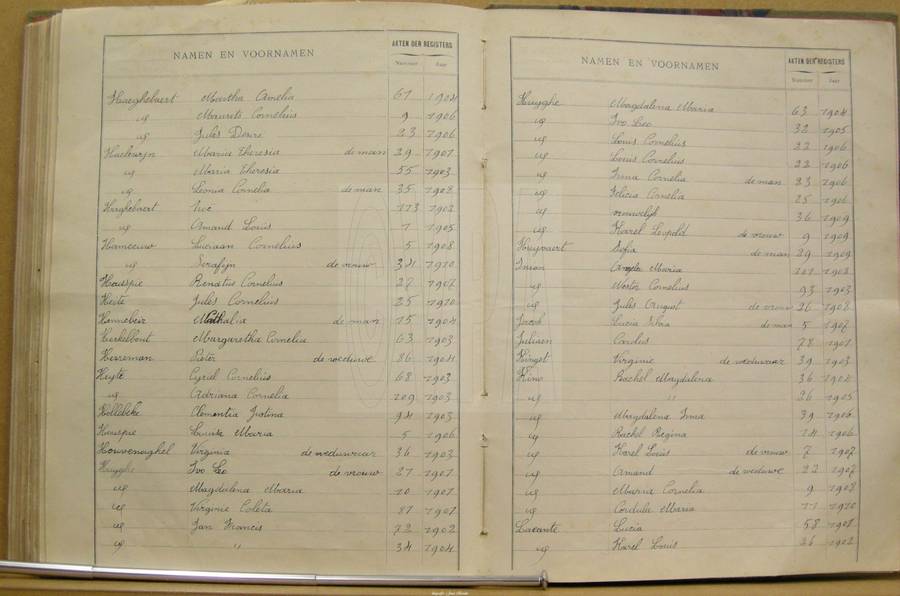 NAMEN EN VOORNAMEN AKTEN DER REGISTERS
Nummer Jaar
Haeghebaert Martha Amelia 61 1904
id Maurits Cornelius 9 1906
id Jules Desiré 23 1906
Maria Theresia de man 29 1901
id Maria Theresia 55 1903
id Leonia Cornelia de man 35 1908
Haghebaert Noë 113 1902
id Amand Louis 1 1905
Hameeuw Luciaan Cornelius 5 1908
id Serafijn de vrouw 34 1910
Hauspie Renatus Cornelius 27 1907
Heite Jules Cornelius 25 1910
Hennebeir Nathalia de man 15 1904
Herkelbout Margaretha Cornelia 63 1903
Herreman Pieter de weduwe 86 1904
Heyte Cyriel Cornelius 68 1903
id Adriana Cornelia 109 1903
Hollebeke Clementia Justina 94 1903
Houspie Louisa Maria 5 1906
Houvenaghel Virginia de weduwaar 36 1903
Huyghe Ivo Leo de vrouw 27 1901
id Magdalena Maria 10 1901
id Virginie Coleta 81 1901
id Jan Francis 72 1902
id " 34 1904
NAMEN EN VOORNAMEN AKTEN DER REGISTERS
Nummer Jaar
Huyghe Magdalena Maria 63 1904
id Ivo Leo 32 1905
id Louis Cornelius 22 1906
id Louis Cornelius 22 1906
id Irma Cornelia de man 23 1906
id Felicia Cornelia 25 1906
id vrouwelijk 36 1909
id Karel Leopold de vrouw 9 1909
Huyvaert Sofia de man 29 1909
Inion Angela Maria 101 1902
id Nestor Cornelius 93 1903
id Jules August de vrouw 26 1908
Jacob Lucia de man 5 1907
Juliaen Carolus 78 1901
Kinget Virginie de weduwaar 39 1903
Kino Rachel Magdalena 36 1902
id " 26 1905
id Magdalena Irma 39 1906
id Rachel Regina 14 1906
id Karel Louis de vrouw 7 1907
id Amand de weduwe 22 1907
id Maria Cornelia 9 1908
id Cordula Maria 11 1910
Lacante Lucia 58 1901
id Karel Louis 26 1902